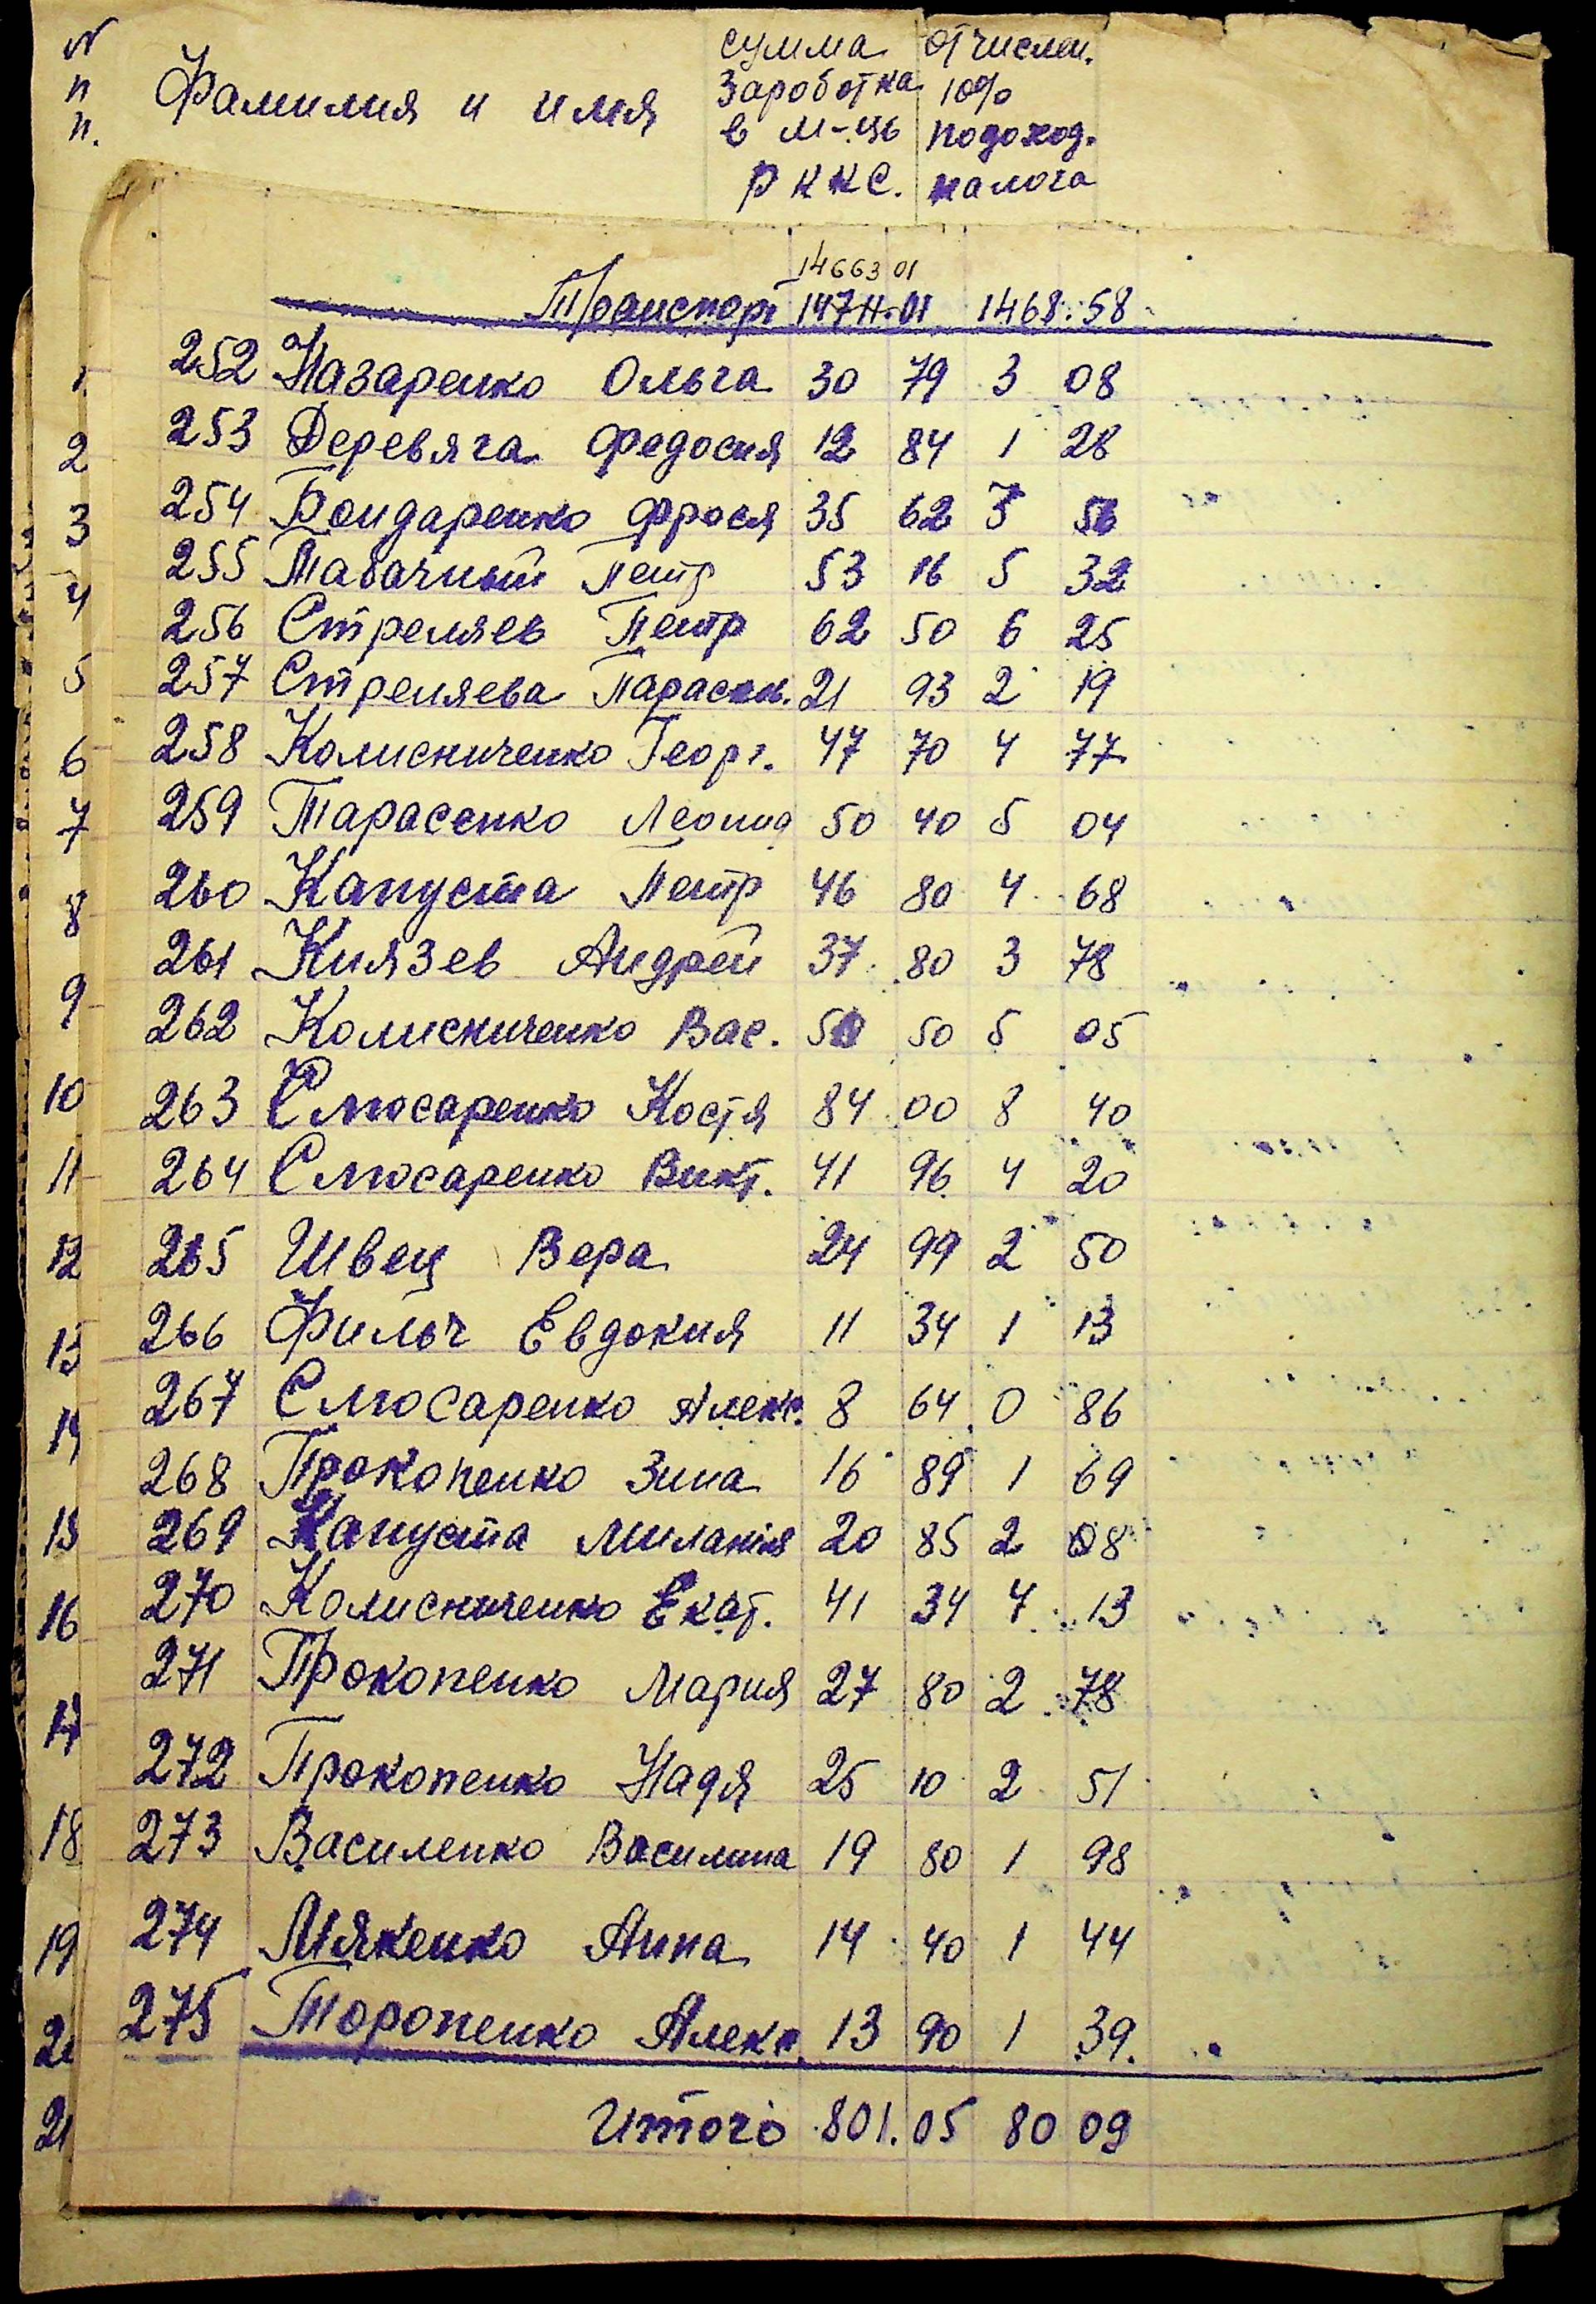 N п п. Фамилия и имя
сумма заработка в м-це р к к с.
отчислен. 10% подоход. налога
14663 01
Транспорт 14711.01 1468.58
252 Назаренко Ольга 30 79 3 08
253 Деревяга Федосия 12 84 1 28
254 Бондаренко Фрося 35 62 3 56
255 Табачный Петр 53 16 5 32
256 Стреляев Петр 62 50 6 25
257 Стреляева Параск. 21 93 2 19
258 Колисниченко Георг. 47 70 4 77
259 Тарасенко Леонид 50 40 5 04
260 Капуста Петр 46 80 4 68
261 Князев Андрей 37 80 3 78
262 Колисниченко Вас. 50 50 5 05
263 Слюсаренко Костя 84 00 8 40
264 Слюсаренко Викт. 41 96 4 20
265 Швец Вера 24 99 2 50
266 Фильч Евдокия 11 34 1 13
267 Слюсаренко Алекс. 8 64 0 86
268 Прокопенко Зина 16 89 1 69
269 Капуста Миланія 20 85 2 08
270 Колисниченко Екат. 41 34 4 13
271 Прокопенко Мария 27 80 2 78
272 Прокопенко Надя 25 10 2 51
273 Василенко Василина 19 80 1 98
274 Мякенко Анна 14 40 1 44
275 Торопенко Алекс. 13 90 1 39.
Итого 801.05 80 09
1
2
3
4
5
6
7
8
9
10
11
12
13
14
15
16
17
18
19
21